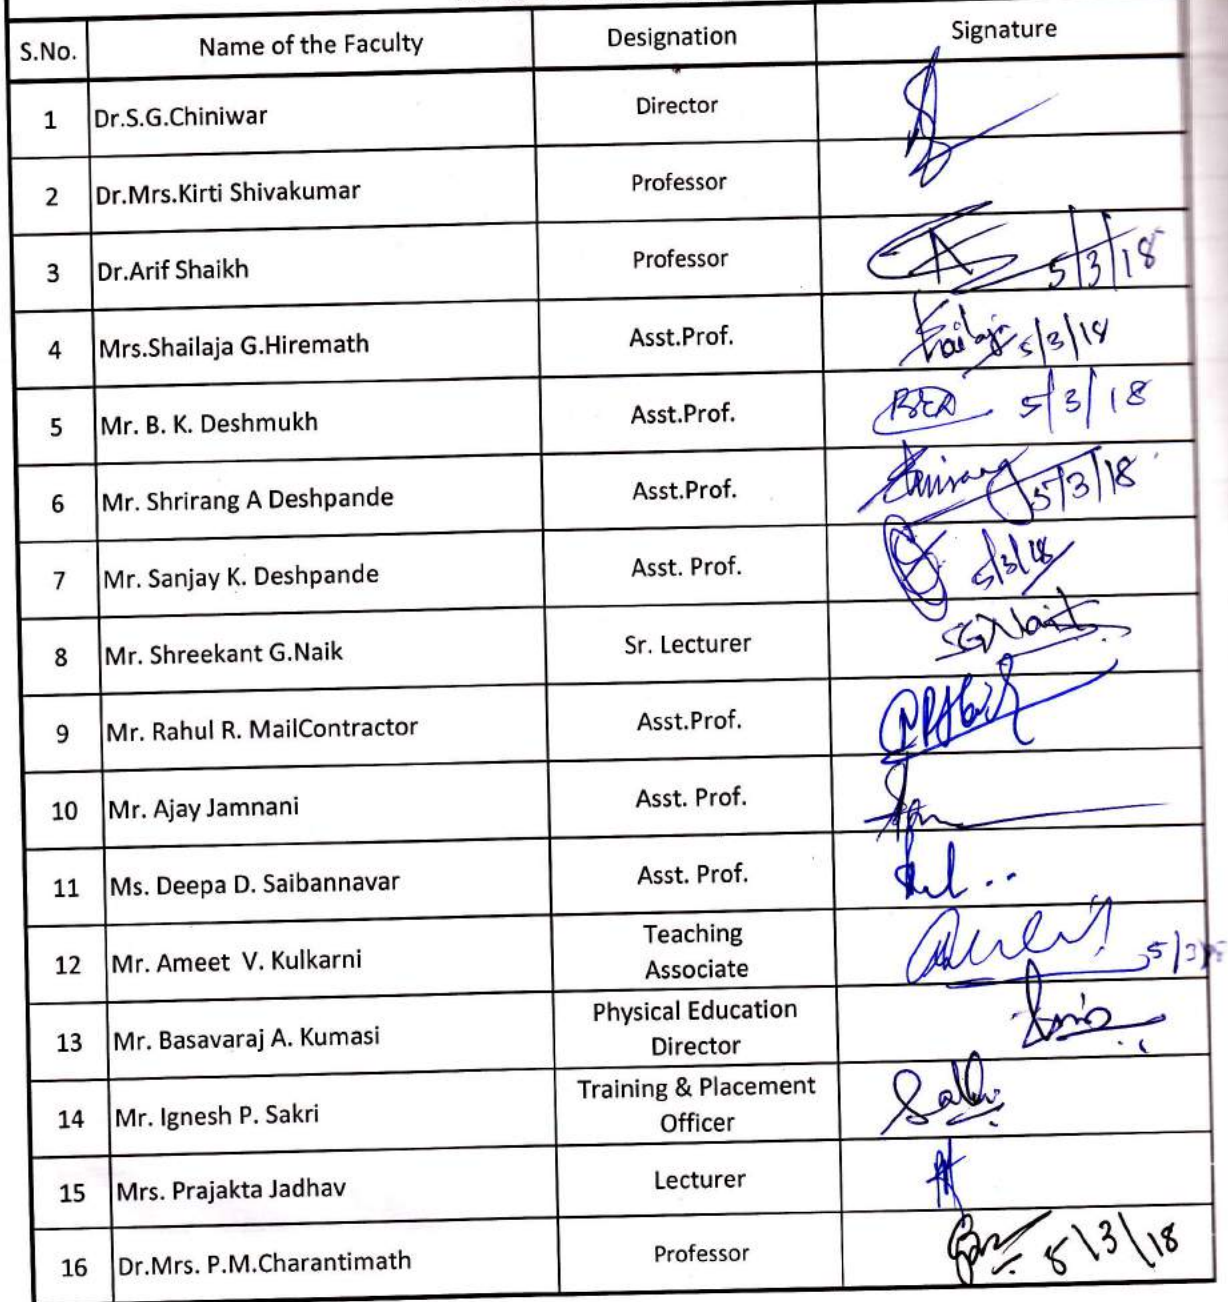 S.No. Name of the Faculty Designation Signature
1 Dr.S.G.Chiniwar Director
2 Dr.Mrs.Kirti Shivakumar Professor
3 Dr.Arif Shaikh Professor 5/3/18
4 Mrs.Shailaja G.Hiremath Asst.Prof. 5/3/18
5 Mr. B. K. Deshmukh Asst.Prof. 5/3/18
6 Mr. Shrirang A Deshpande Asst.Prof. 5/3/18
7 Mr. Sanjay K. Deshpande Asst. Prof. 5/3/18
8 Mr. Shreekant G.Naik Sr. Lecturer SGNaik
9 Mr. Rahul R. MailContractor Asst.Prof.
10 Mr. Ajay Jamnani Asst. Prof.
11 Ms. Deepa D. Saibannavar Asst. Prof.
12 Mr. Ameet V. Kulkarni Teaching
Associate
13 Mr. Basavaraj A. Kumasi Physical Education
Director
14 Mr. Ignesh P. Sakri Training & Placement
Officer
15 Mrs. Prajakta Jadhav Lecturer
16 Dr.Mrs. P.M.Charantimath Professor 5/3/18